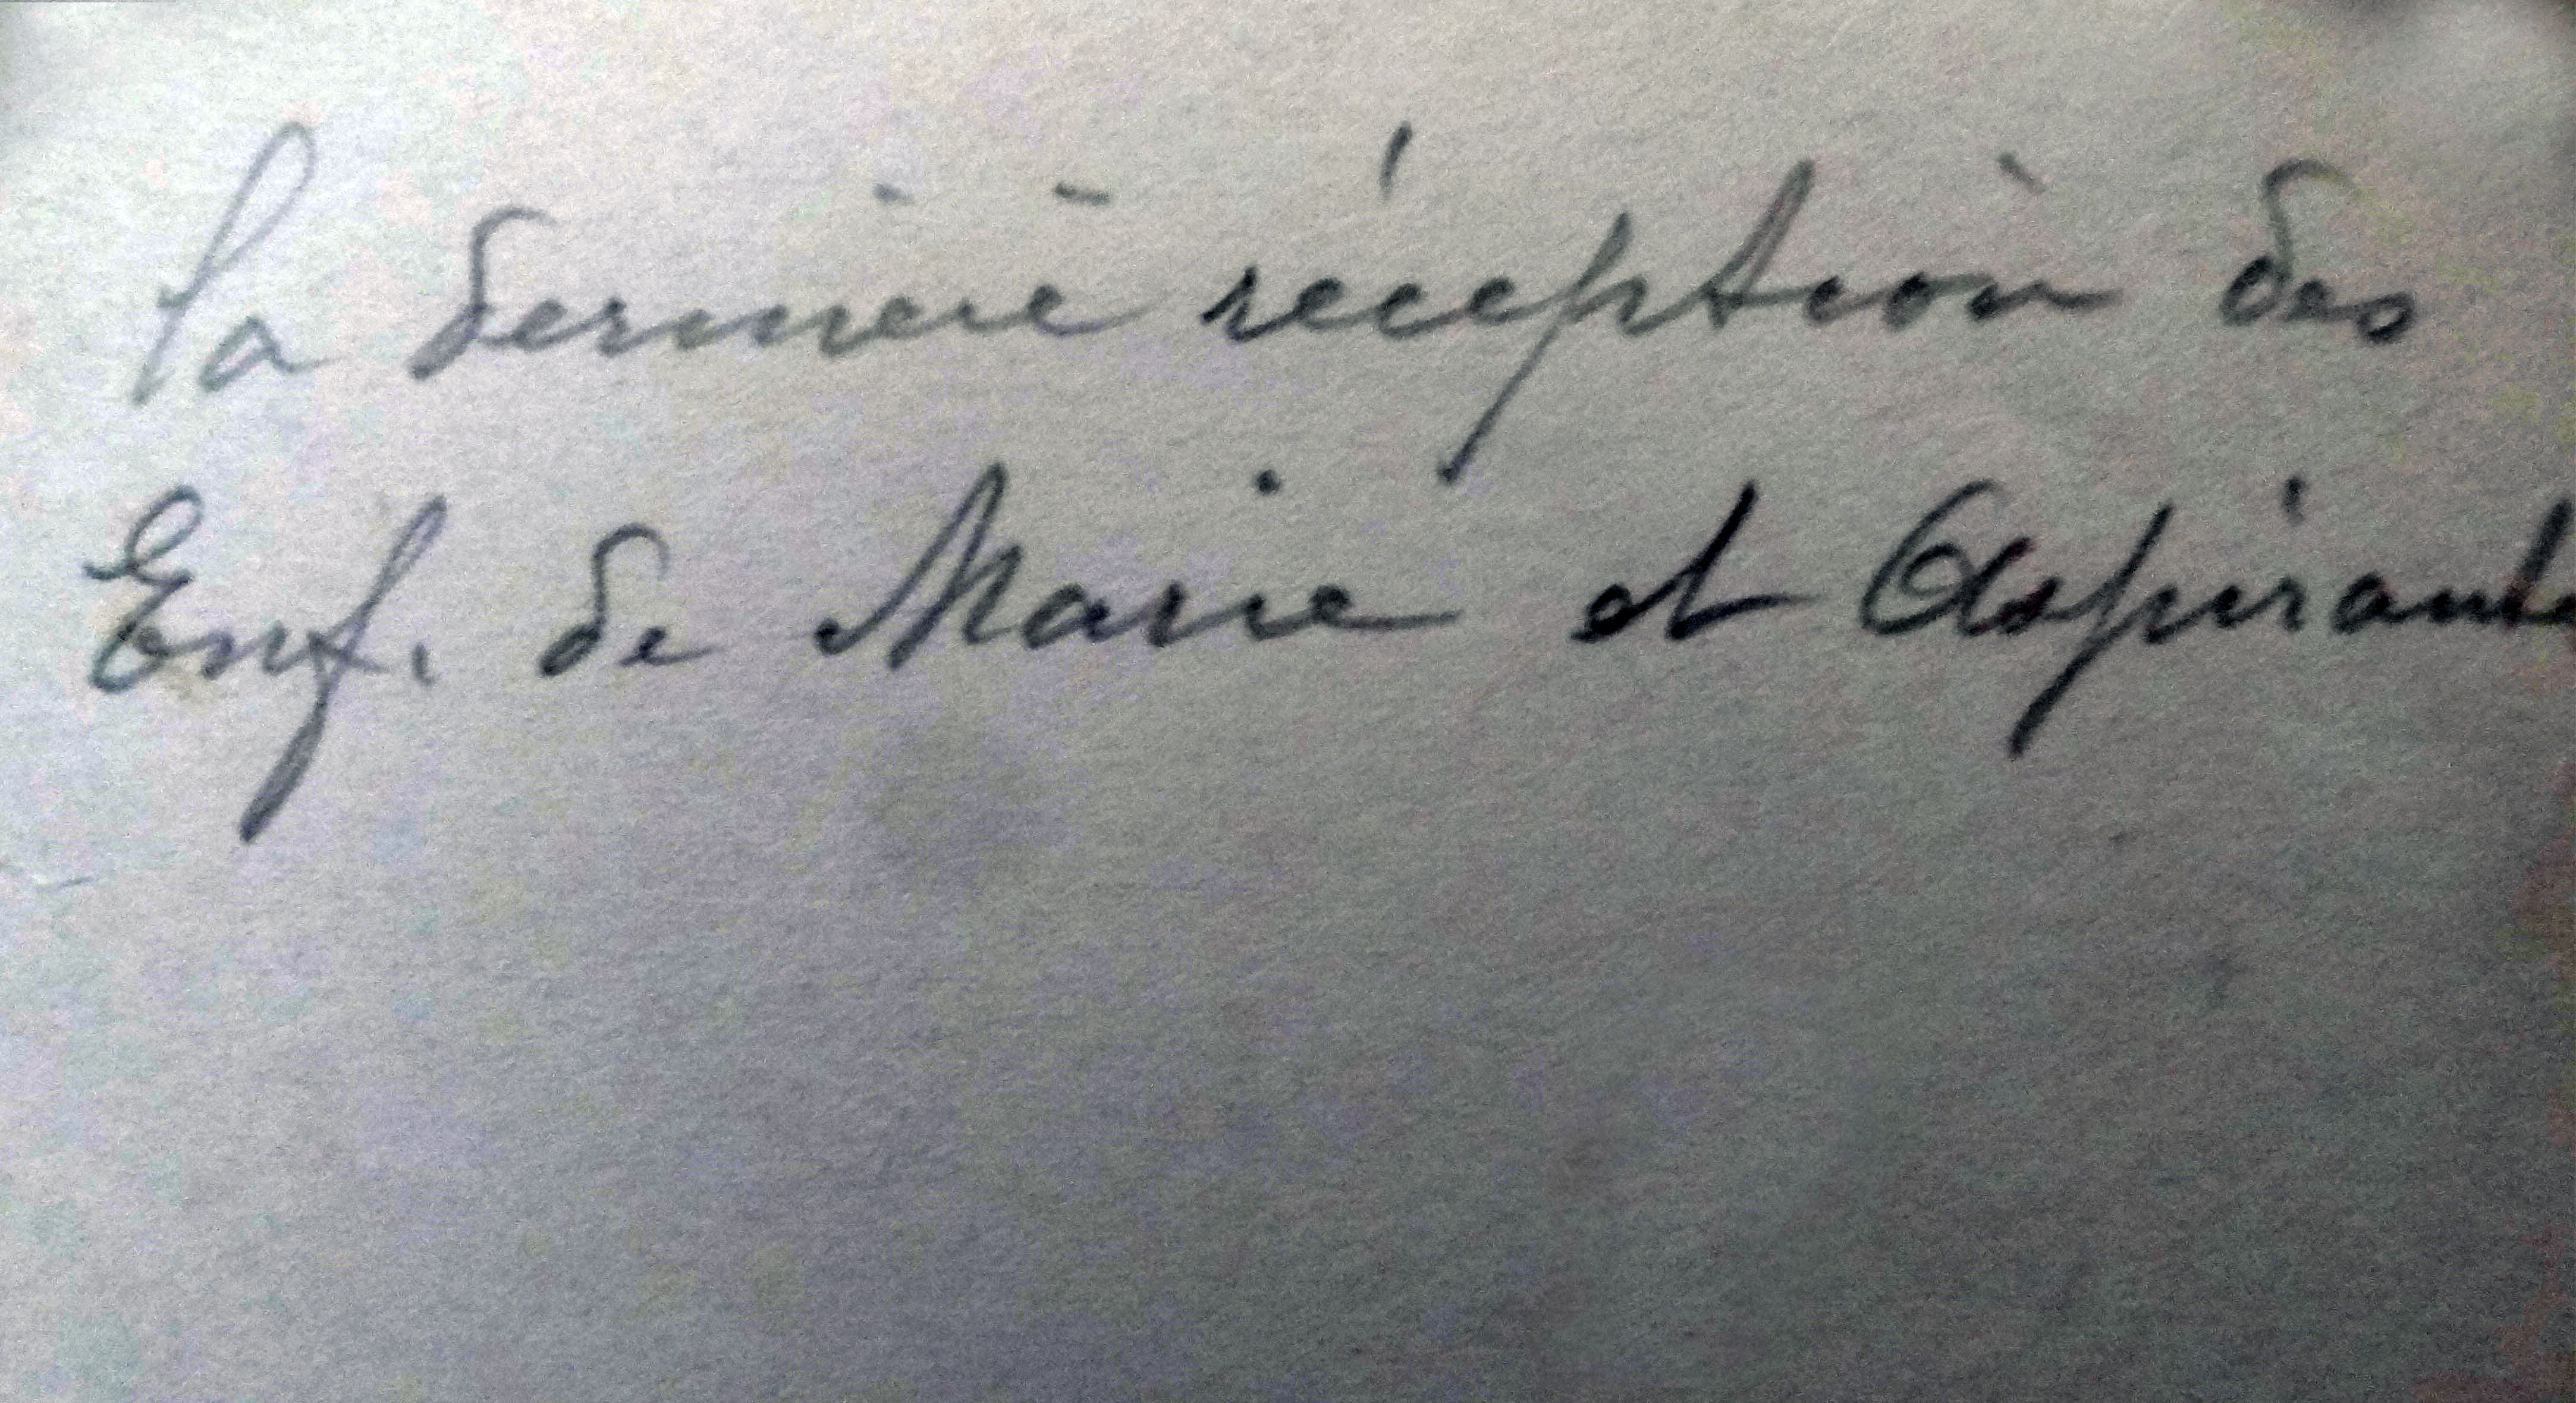 la dernière réception des
Enf. de Marie et Aspirante